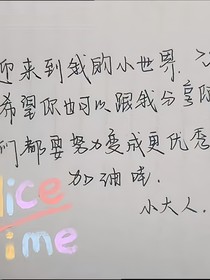 迎来到我的小世界.
希望你也可以跟我分享你
们都要努力变成更优秀
加油哇.
小大人.
lice
ime